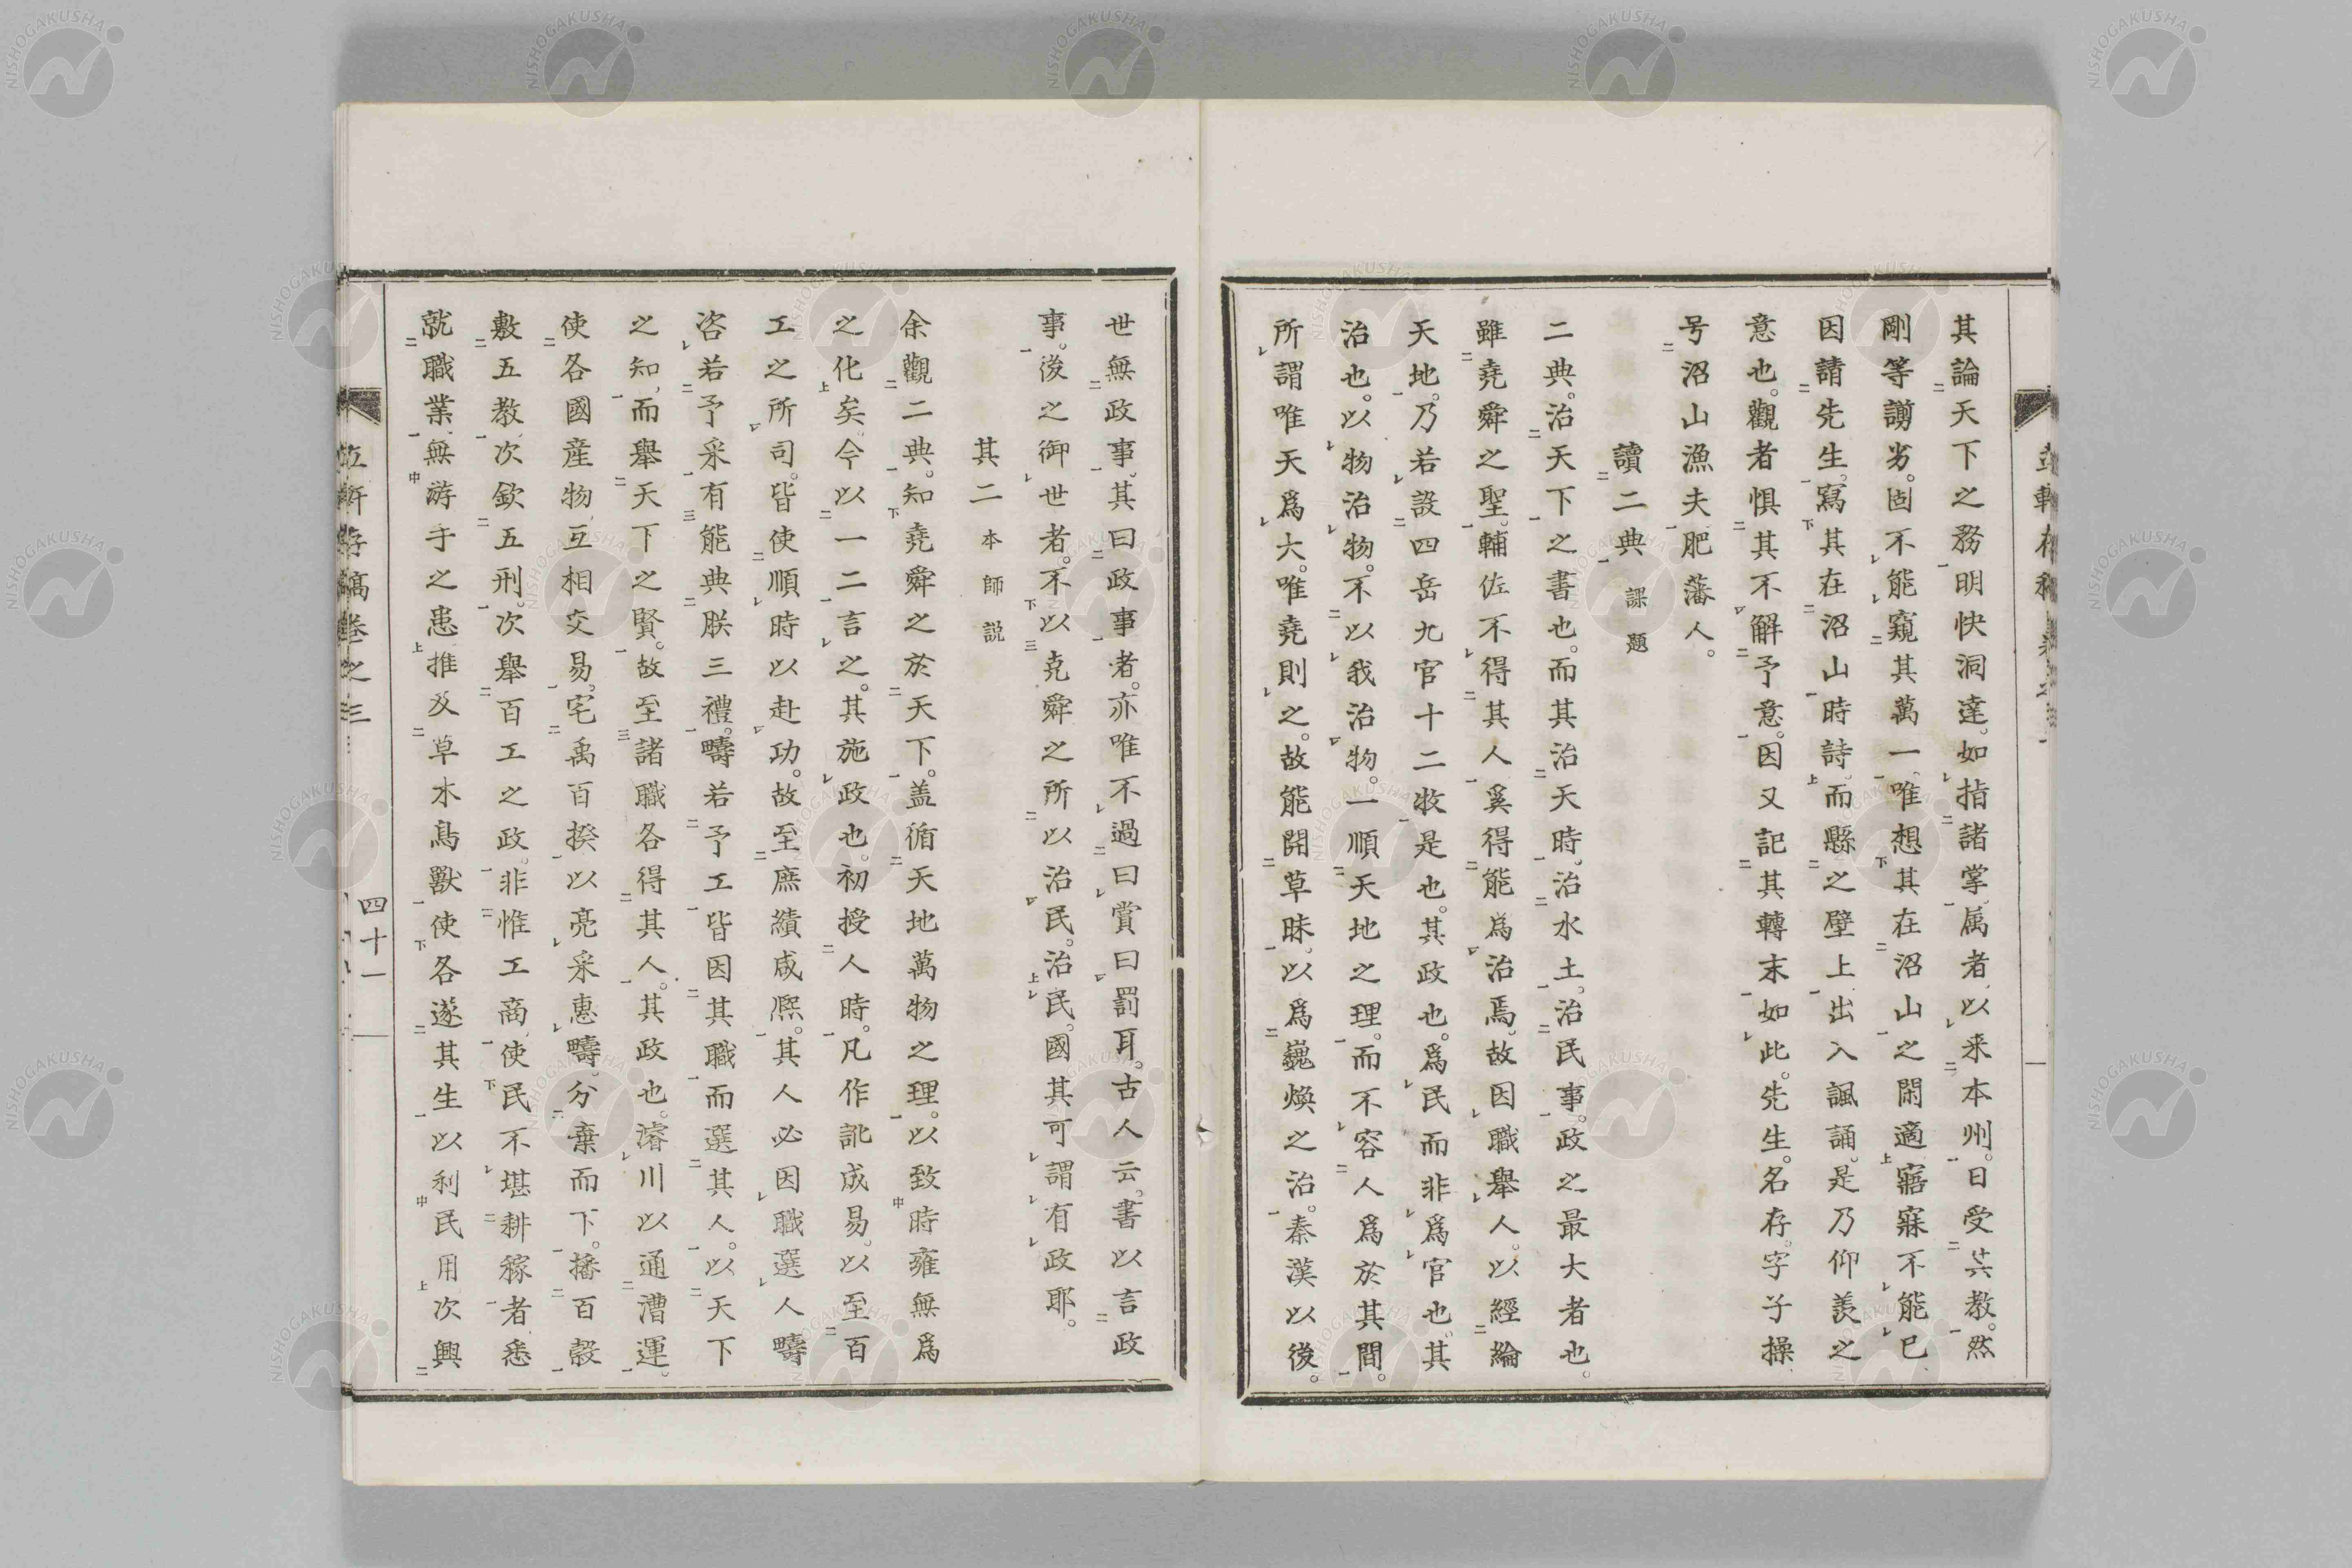 其論天下之務明快洞達。如指諸掌屬者以来本州。日受其教。然
剛等謭劣。固不能窺其萬一、唯想其在沼山之閑適寤寐不能已
因請先生。寫其在沼山時詩、而懸之壁上出入諷誦。是乃仰羨之
意也。觀者惧其不解予意。因又記其轉末如此。先生。名存。字子操
号沼山漁夫肥藩人。
讀二典 課題
二典。治天下之書也。而其治天時。治水土。治民事。政之最大者也。
雖堯舜之聖。輔佐不得其人奚得能爲治焉。故因職舉人。以經綸
天地。乃若設四岳九官十二牧是也。其政也。爲民而非爲官也。其
治也。以物治物。不以我治物。一順天地之理。而不容人爲於其間。
所謂唯天爲大。唯堯則之。故能開草昧。以爲巍煥之治。秦漢以後。
世無政事。其曰政事者。亦唯不過曰賞曰罰耳。古人云。書以言政
事。後之御世者。不以堯舜之所以治民。治民。國其可謂有政耶。
其二 本師説
余觀二典。知堯舜之於天下。盖循天地萬物之理。以致時雍無爲
之化矣。今以一二言之。其施政也。初授人時。凡作訛成易。以至百
工之所司。皆使順時以赴功。故至庶績咸熈。其人必因職選人疇
咨若予采有能典朕三禮。疇若予工皆因其職而選其人。以天下
之知、而舉天下之賢。故至諸職各得其人。其政也。濬川以通漕運。
使各國産物互相交易。宅禹百揆以亮采惠疇。分棄而下。播百穀
敷五教、次欽五刑。次舉百工之政。非惟工商、使民不堪耕稼者悉
就職業、無游手之患推及草木鳥獸使各遂其生以利民用次興
四十一